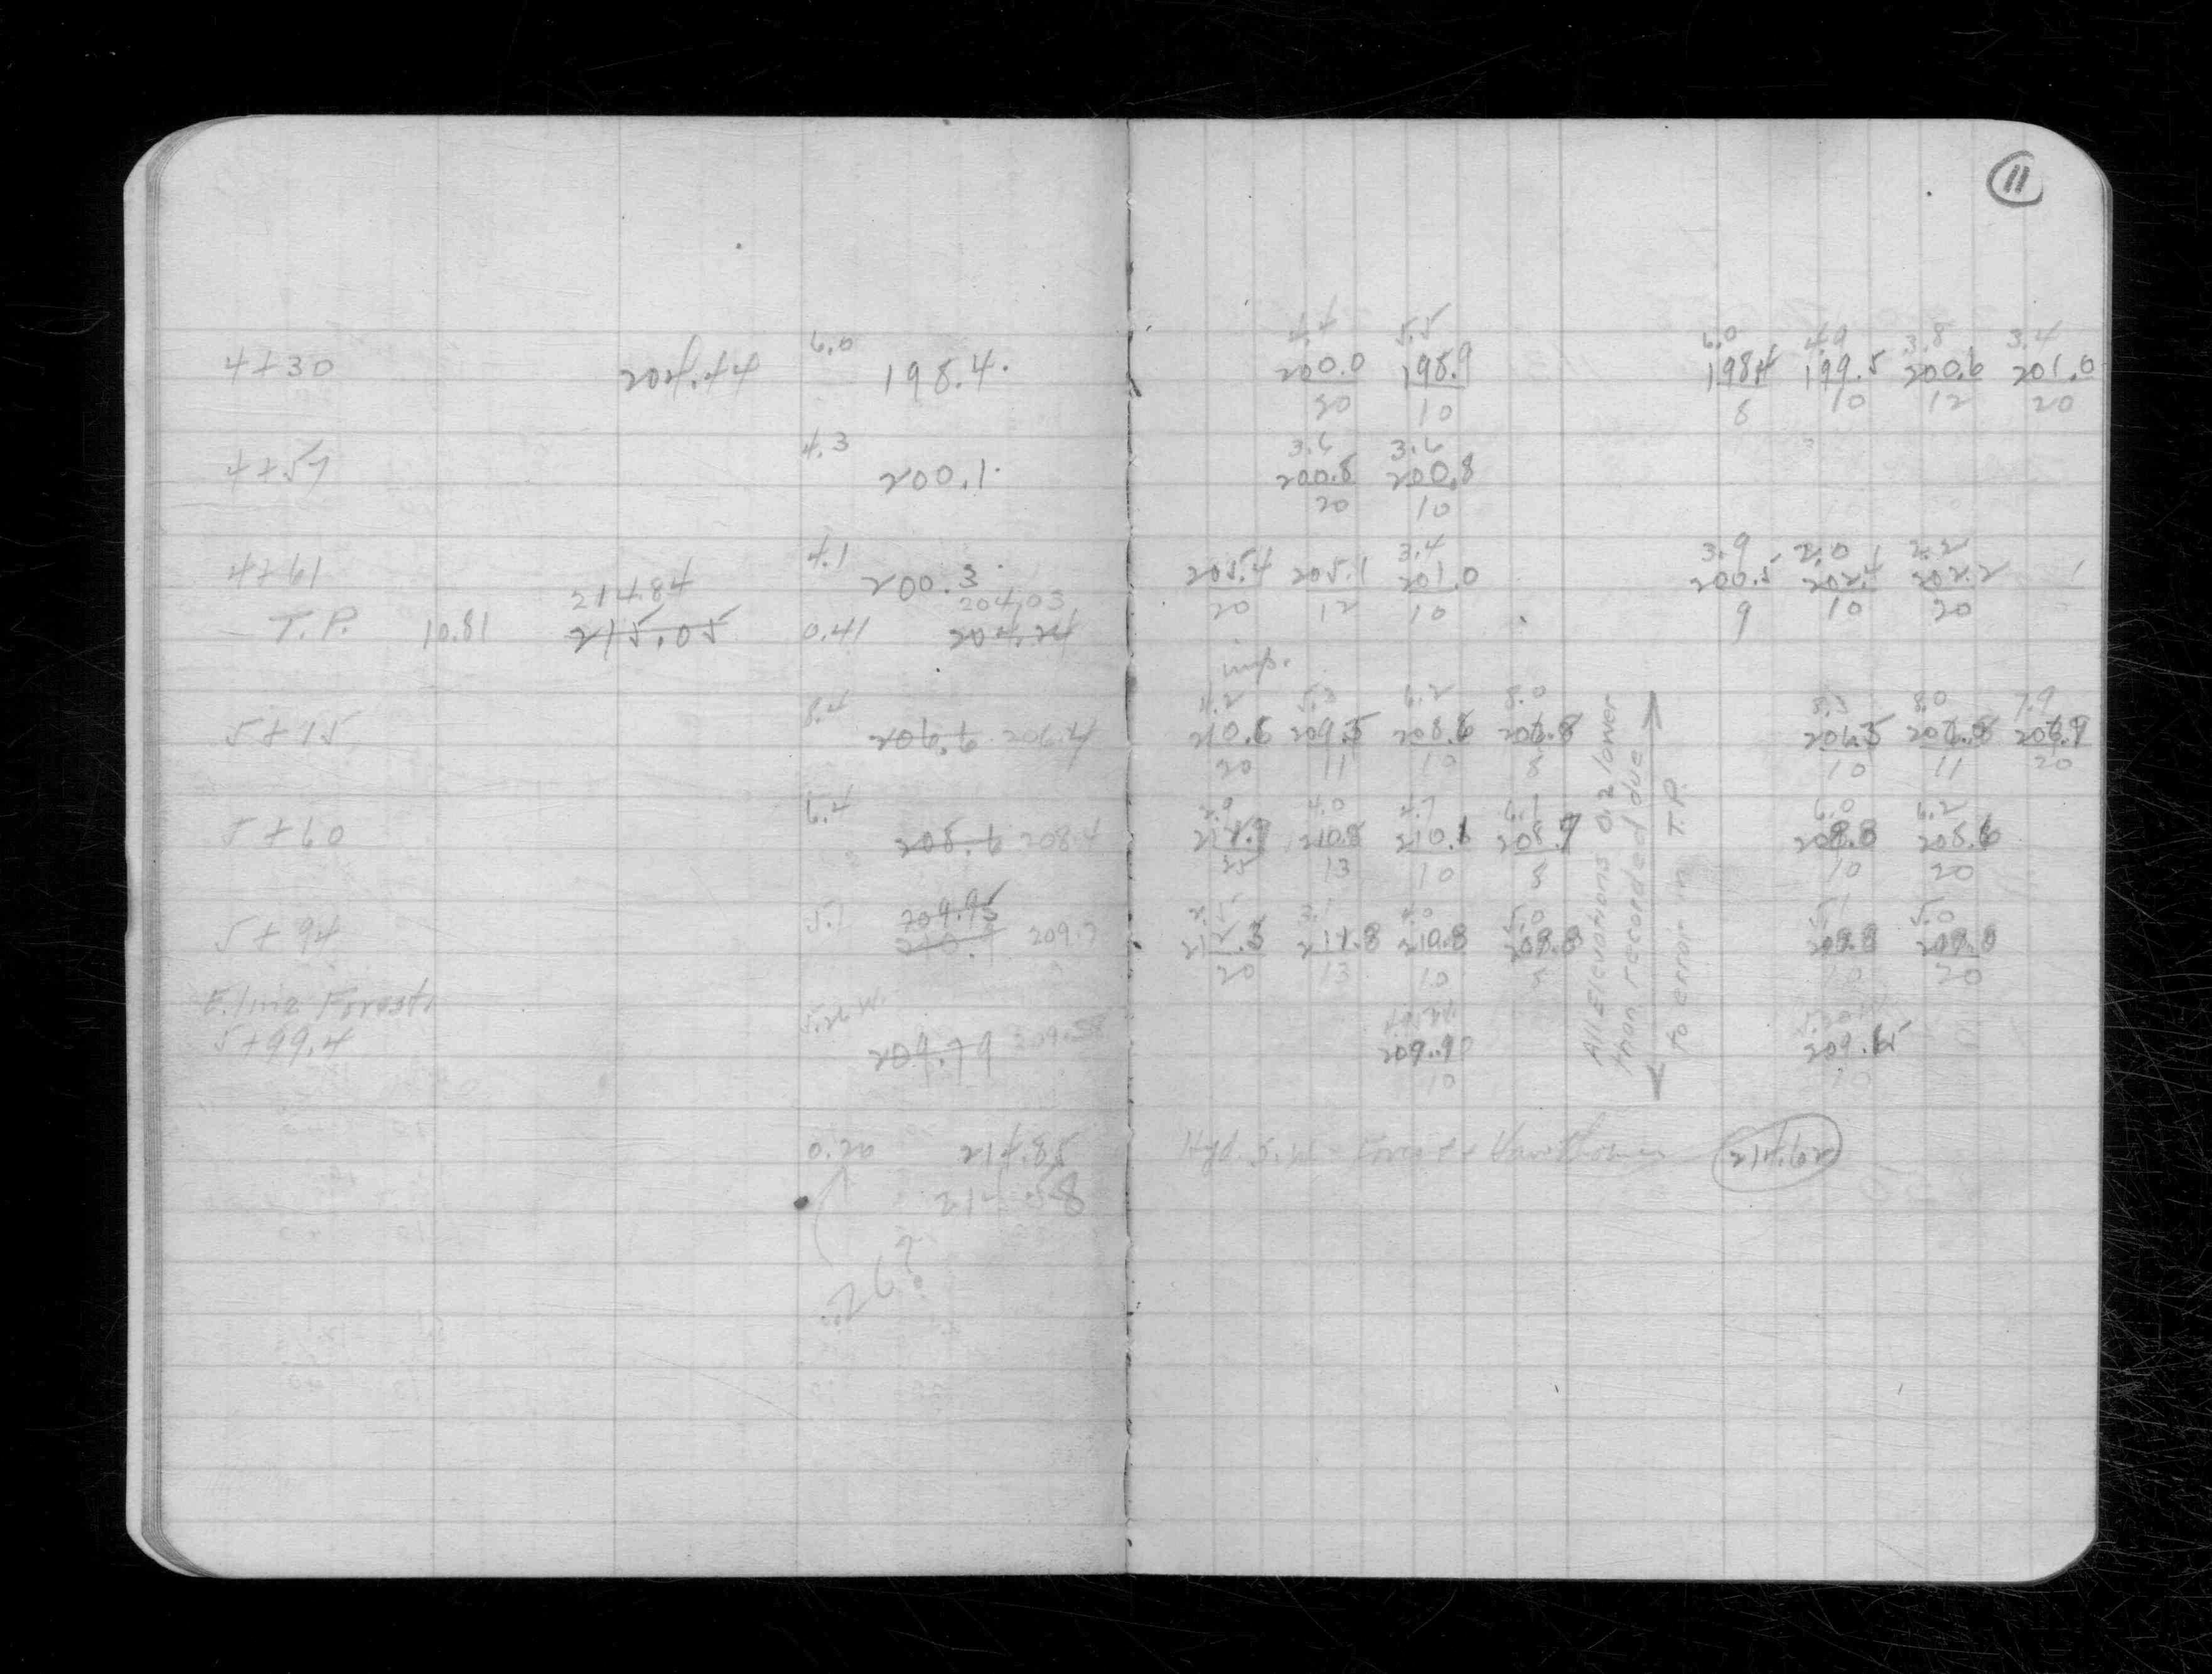 11
6.0 4.4 5.5 6.0 4.9 3.8 3.4
4+30 204.44 198.4. 200.0 198.9 198.4 199.5 200.6 201.0
20 10 8 10 12 20
4.3 3.6 3.6
4+57 200.1. 200.8 200.8
20 10
4.1 3.4 3.9 2.0 2.2
4+61 200.3 205.4 205.1 201.0 200.5 202.4 202.2
214.84 204.03 20 12 10 9 10 20
T.P. 10.81 215.05 0.41 204.24
imp.
8.4 4.2 5.3 6.2 8.0 8.3 8.0 7.9
5+15 206.6 206.4 210.6 209.5 208.6 206.8 206.5 206.8 206.9
20 11 10 8 10 11 20
6.4 4.0 4.7 6.1 6.0 6.2
5+60 208.6 208.4 210.8 210.1 208.7 208.8 208.6
25 13 10 8 10 20
5.1 209.95 2.5 3.1 4.0 5.0 5.1 5.0
5+94 209.7 212.3 211.8 210.8 209.8 209.8 209.8
20 13 10 8 10 20
E. line Forest
5+99.4 209.79 209.58 209.90 209.65
10 10
All Elevations 0.2 lower
than recorded due
to error in T.P.
0.20 214.85 Hyd. S.W. - Forest + Hawthorne 214.62
214.58
.26?